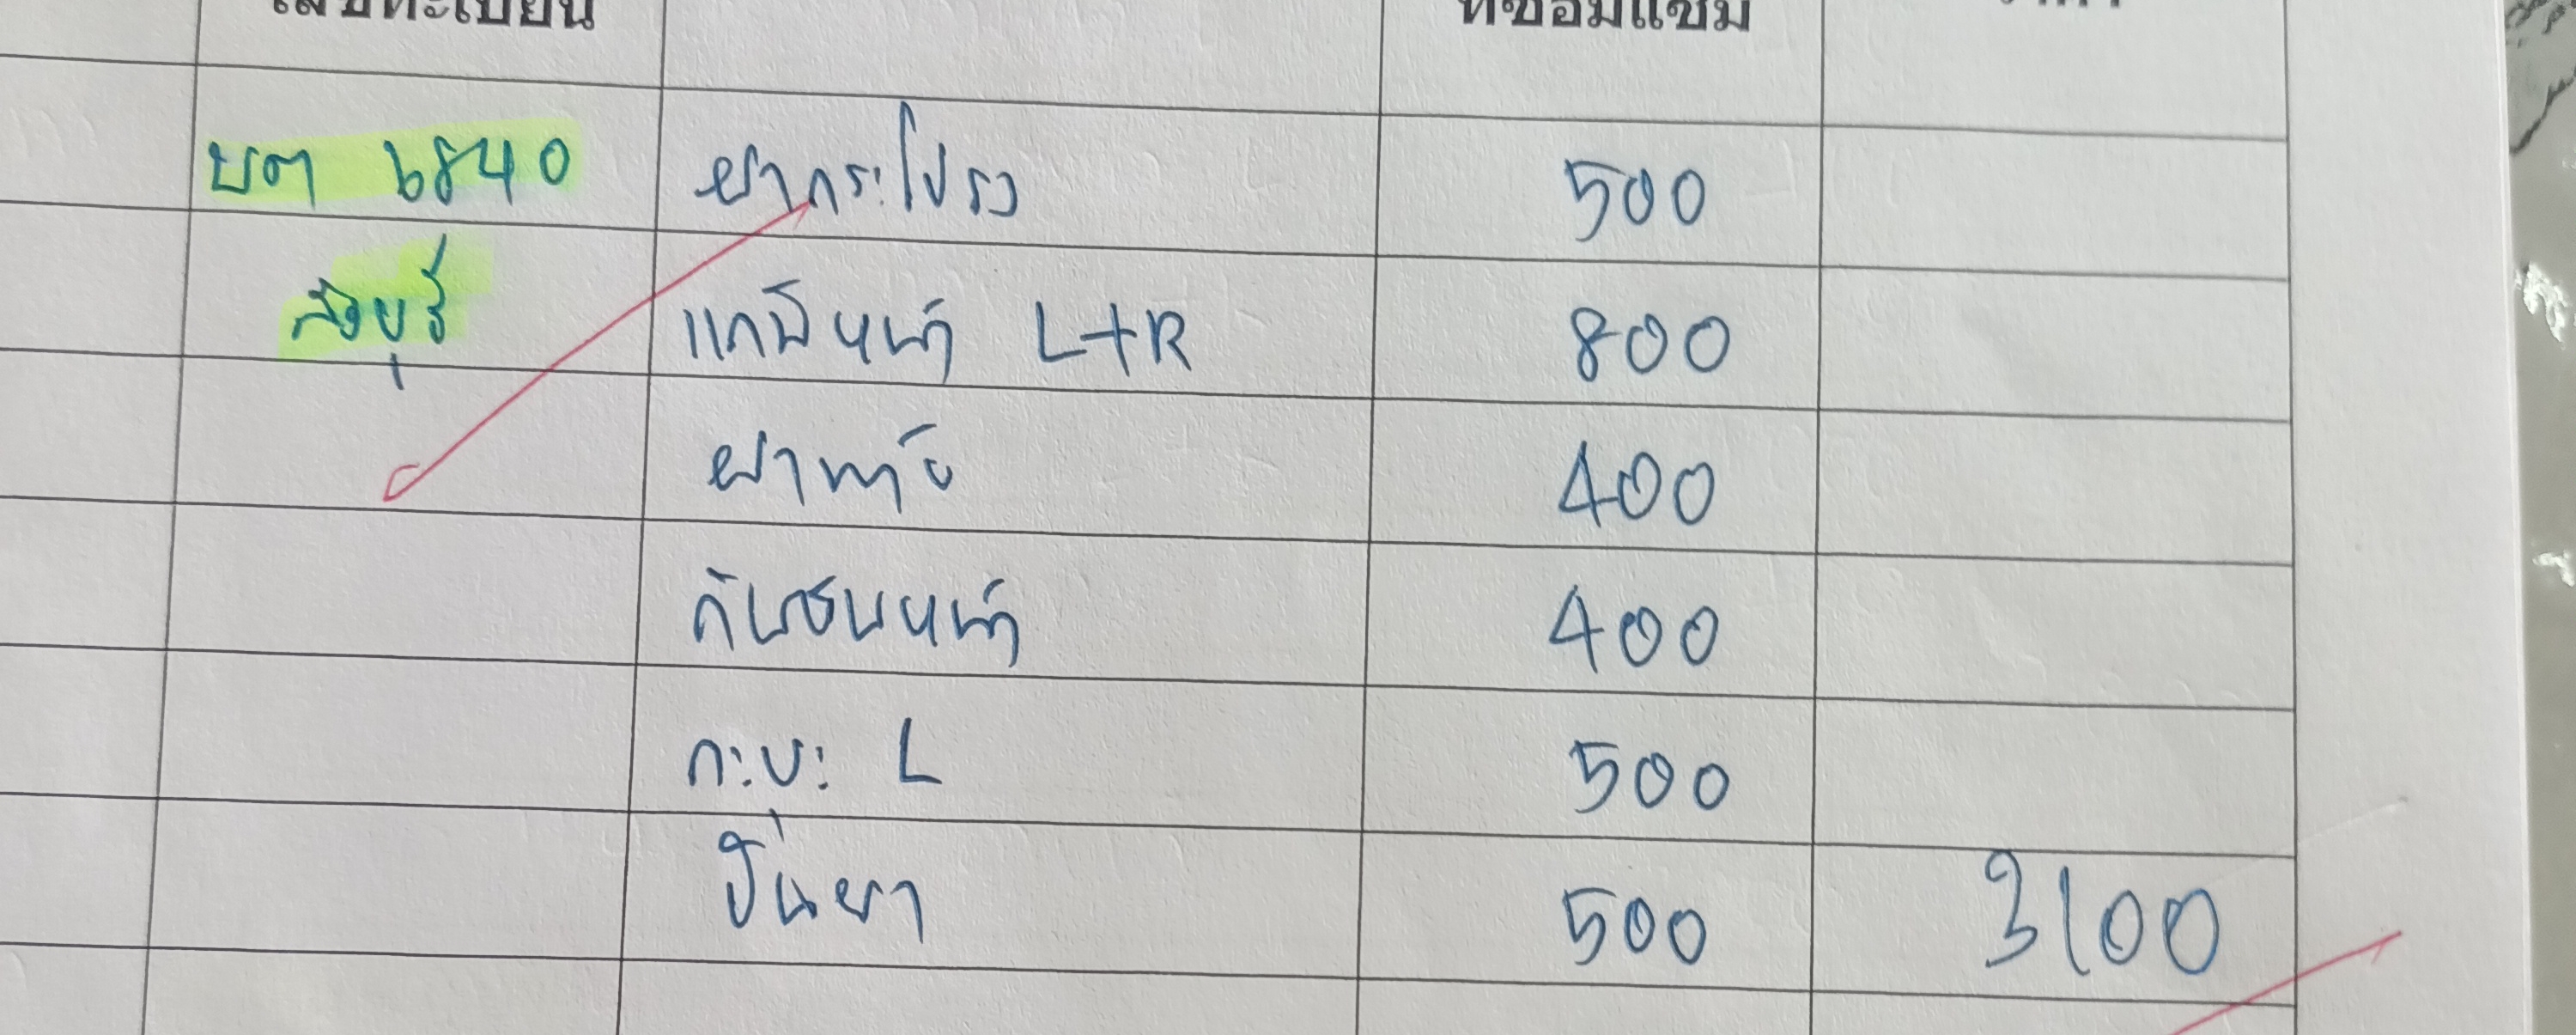 เลขทะเบียน ที่ซ่อมแซม ราคา
บต 6840 ฝากระโปรง 500
สิงบุรี แก้มหน้า L+R 800
ฝาท้าย 400
กันชนหน้า 400
กะบะ L 500
ปั่นยา 500 3100